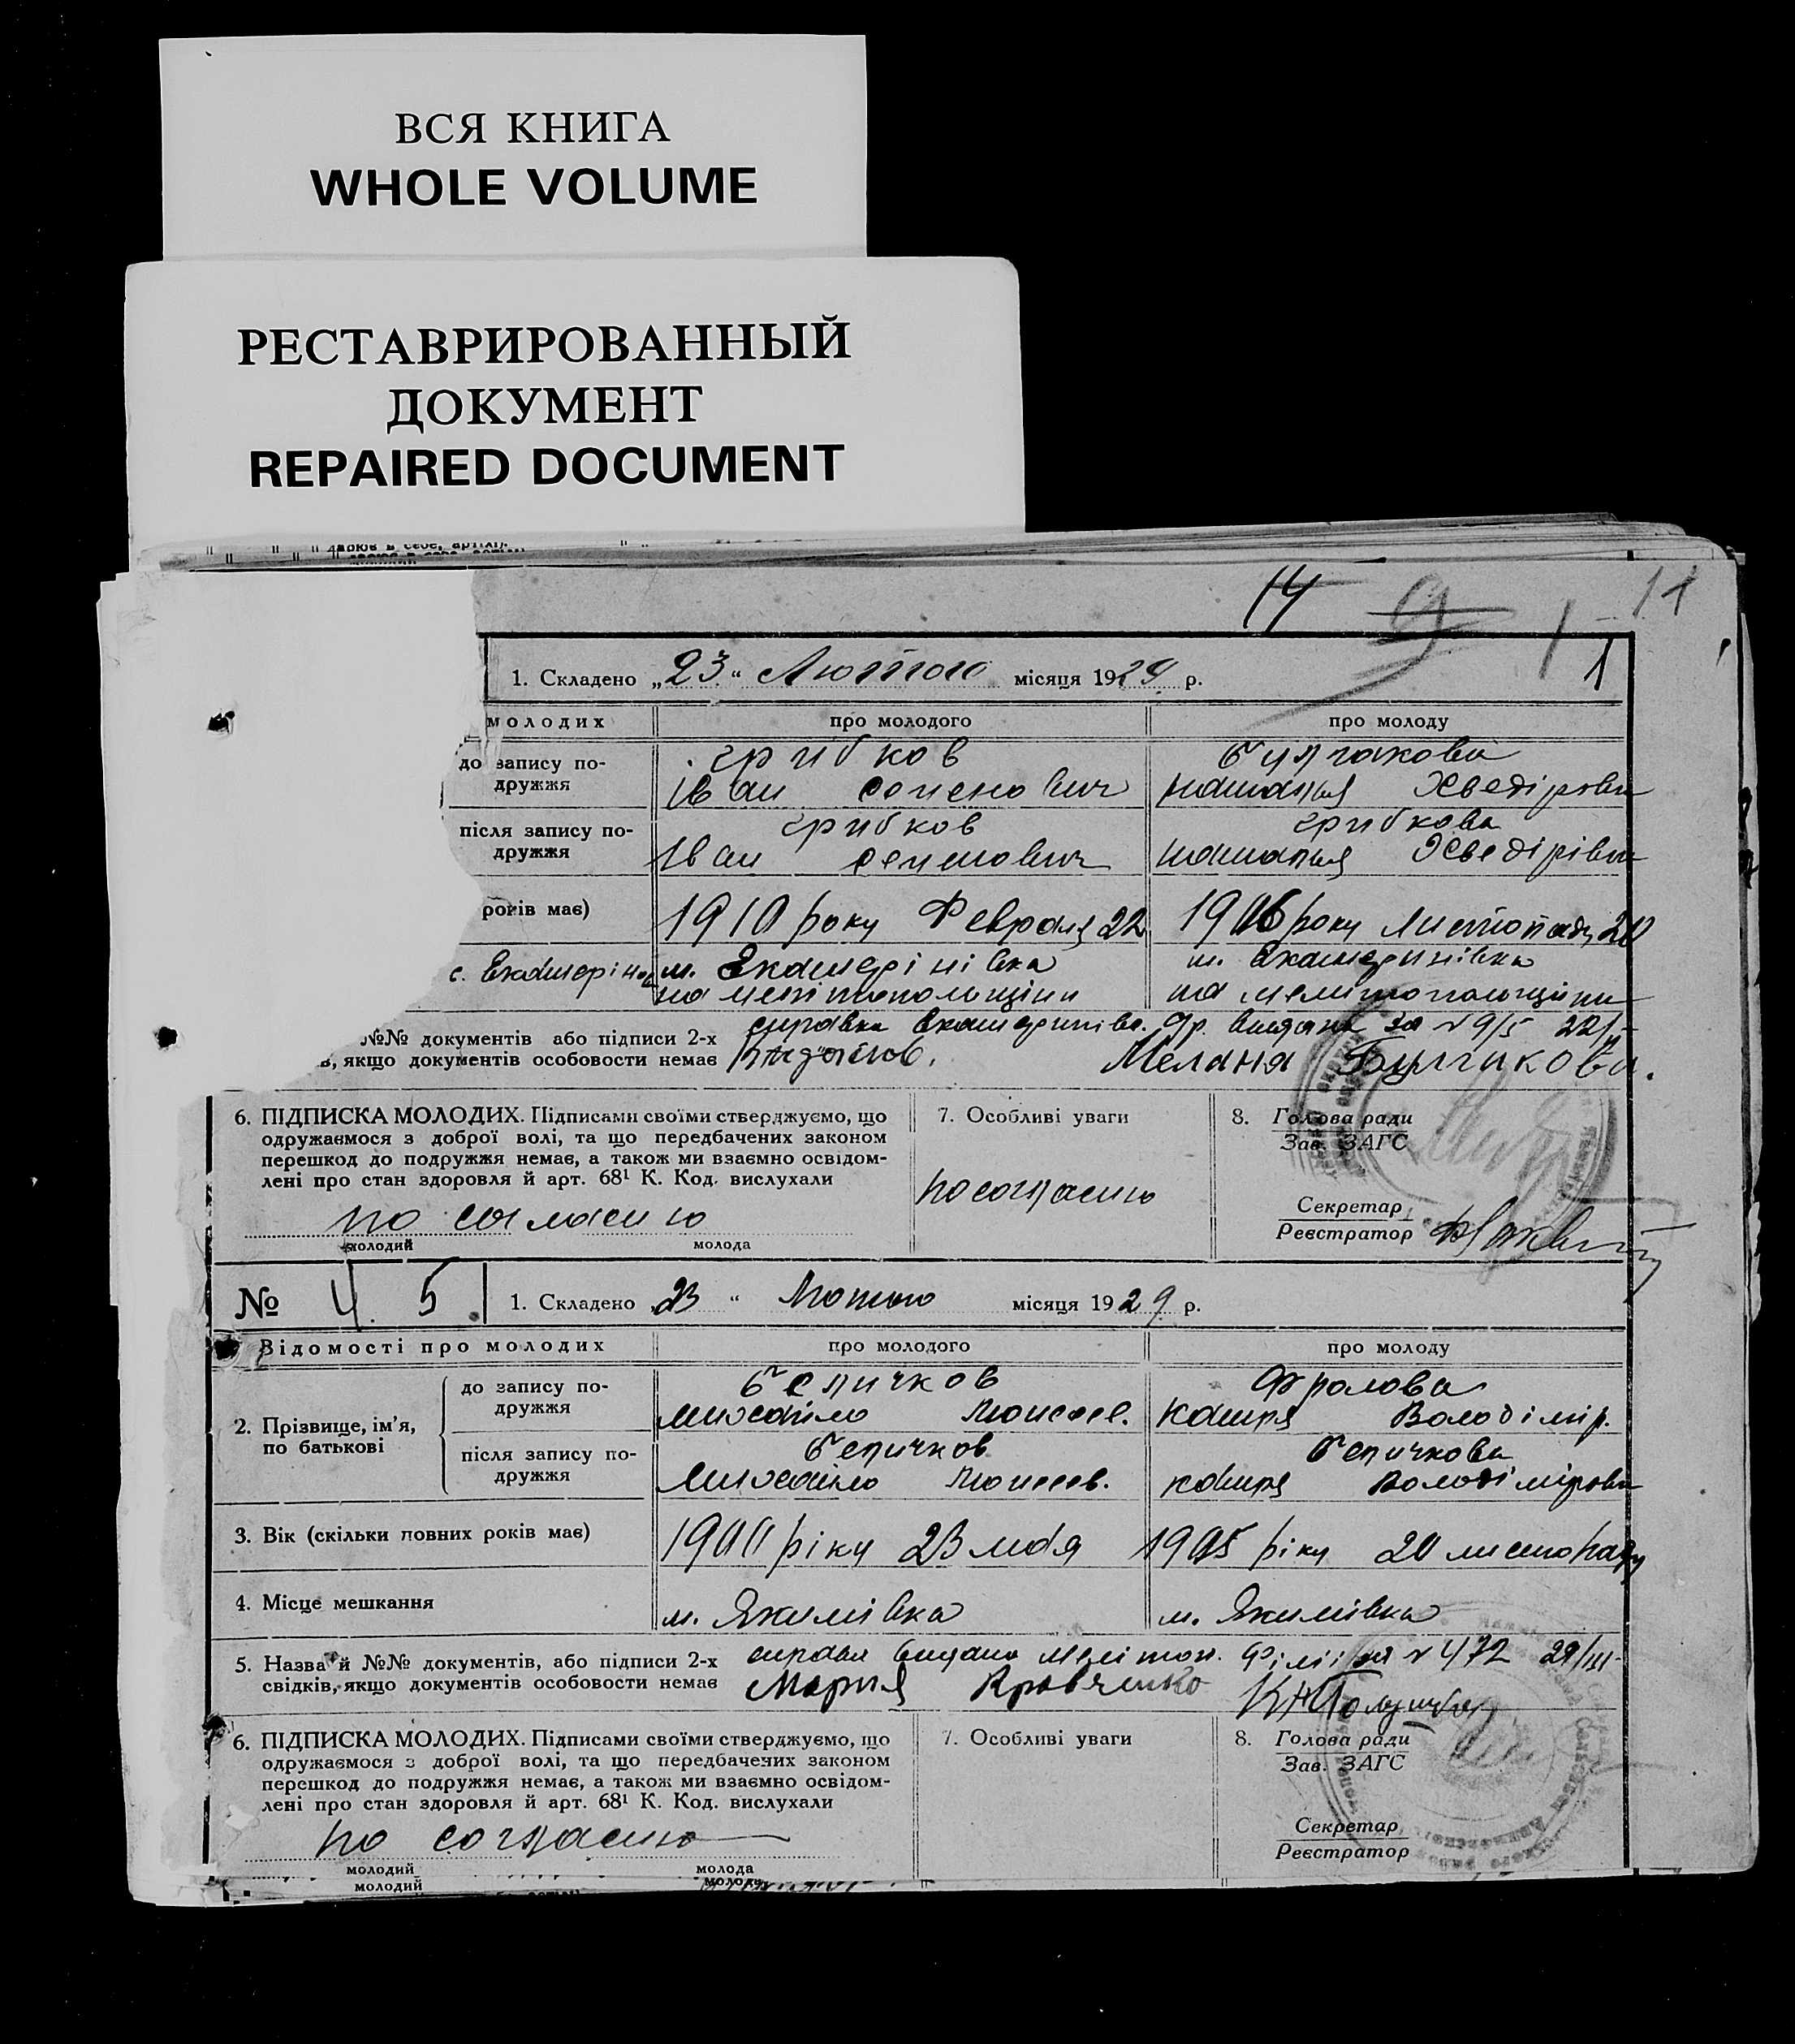 ВСЯ КНИГА
WHOLE VOLUME
РЕСТАВРИРОВАННЫЙ
ДОКУМЕНТ
REPAIRED DOCUMENT
14 9 1 11
1
1. Складено „23“ Лютого місяця 1929 р.
молодих про молодого про молоду
до запису по-
дружжя
Грибков Булгакова
Іван Семенович Наталья Хведірови
після запису по-
дружжя
Грибков Грибкова
Іван Семенович Наталья Хведірівна
років має) 1910 року Февраля 22 1906 року Листопаду 20
с. Екатеріно м. Екатерінівка м. Екатеринівка
на мелітопольщіни на мелитопольщіни
№№ документів або підписи 2-х справка Екатеринівс. видана за №9/5
в, якщо документів особовости немає Меланя Булгакова.
6. ПІДПИСКА МОЛОДИХ. Підписами своїми стверджуємо, що
одружаємося з доброї волі, та що передбачених законом
перешкод до подружжя немає, а також ми взаємно освідом-
лені про стан здоровля й арт. 68¹ К. Код. вислухали
по согласию
молодий молода
7. Особливі уваги
по согласию
8. Голова ради
Зав. ЗАГС
Секретар
Реєстратор
№ 45 1. Складено 23 “ Лютого місяця 1929 р.
Відомості про молодих про молодого про молоду
2. Прізвище, ім’я,
по батькові
до запису по-
дружжя
Беличков Фролова
Михайло Моисеев. Катря Володімір.
після запису по-
дружжя
Беличков Беличкова
Михайло Моисеев. Катря Володімірови
3. Вік (скільки повних років має) 1900 ріку 23 1905 ріку 20 листопаду
4. Місце мешкання м. Якимівка м. Якимівка
5. Назва й №№ документів, або підписи 2-х справка видана мелітоп. № 472 29/III
свідків, якщо документів особовости немає Мария Кравченко
6. ПІДПИСКА МОЛОДИХ. Підписами своїми стверджуємо, що
одружаємося з доброї волі, та що передбачених законом
перешкод до подружжя немає, а також ми взаємно освідом-
лені про стан здоровля й арт. 68¹ К. Код. вислухали
по согласию
молодий молода
7. Особливі уваги
8. Голова ради
Зав. ЗАГС
Секретар
Реєстратор
молодий молода